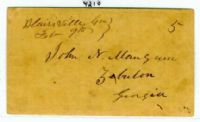 4210
Blairsville Ga
Feb 9th
5
John N. Mangum
Zebulon
Georgia